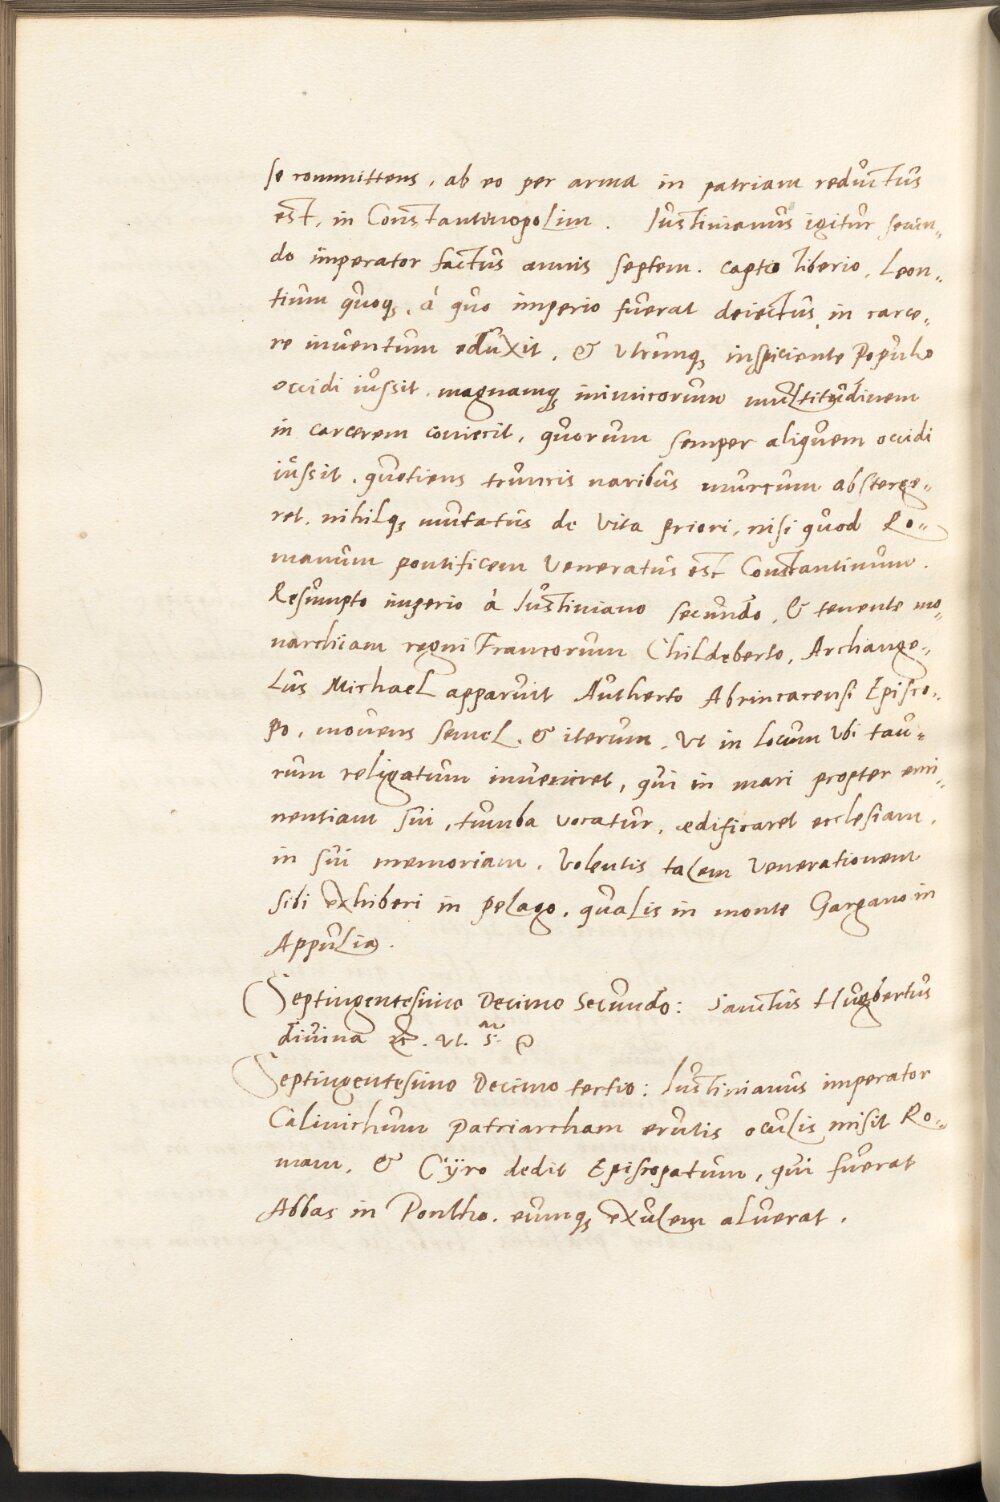 se committens, ab eo per arma in patriam reductus
est, in Constantinopolim. Justinianus igitur secun„
do imperator factus annis septem. capto Tiberio, Leon„
tium quoq, á quo imperio fuerat deiectus in carce„
re inventum eduxit, & Vtrumq, inspiciente Populo
occidi iussit, magnamq, inimicorum multitudinem
in carcerem coniecit, quorum semper aliquem occidi
iussit, quotiens truncis naribus murcum absterge„
ret, nihilq, mutatus de Vita priori, nisi quod Ro„
manum pontificem Veneratus est Constantinum.
Resumpto imperio á Justiniano secundo, & tenente mo„
narchiam regni Francorum Childeberto, Archange„
lus Michael apparuit Autherto Abrincacensi Episco„
po, movens semel, & iterum, Vt in locum Vbi tau„
rum religatum inveniret, qui in mari propter emi„
nentiam sui, tumba vocatur, ædificaret ecclesiam,
in sui memoriam. Volentis talem Venerationem
sibi exhiberi in pelago, qualis in monte Gargano in
Appulia.
Septingentesimo Decimo Secundo: Sanctus Hugbertus
divina &. Vt.
Septingentesimo Decimo tertio: Justinianus imperator
Calinichum Patriarcham erutis oculis misit Ro„
mam, & Cÿro dedit Episcopatum, qui fuerat
Abbas in Pontho, eumq, exulem aluerat.